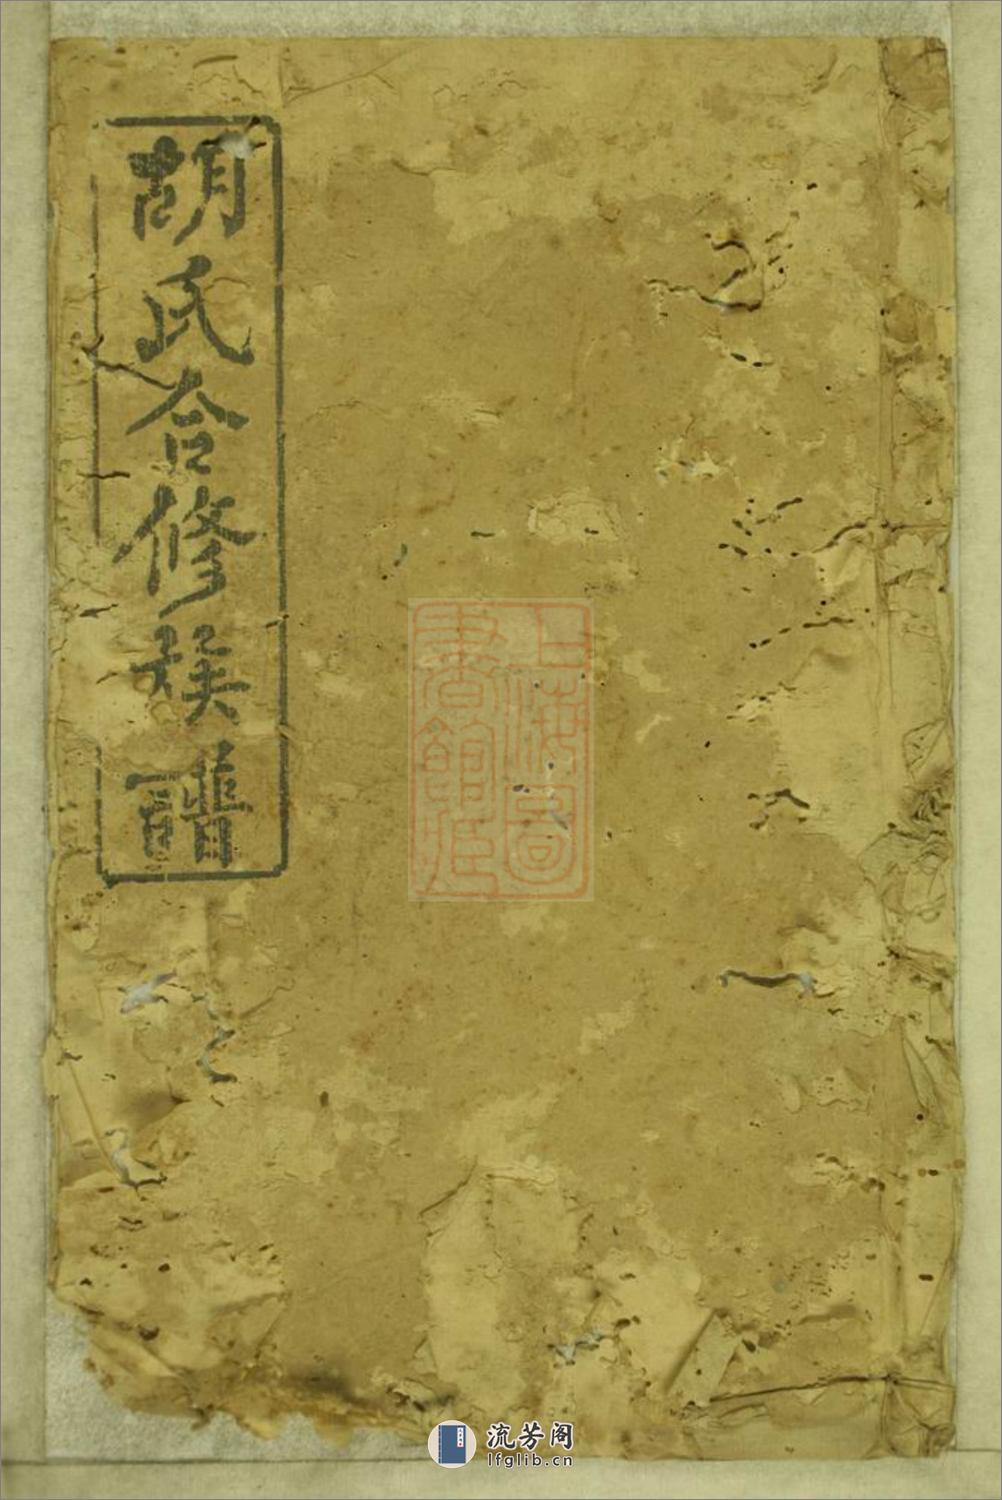 胡氏合修族譜
上海圖
書館藏
流芳阁
lfglib.cn